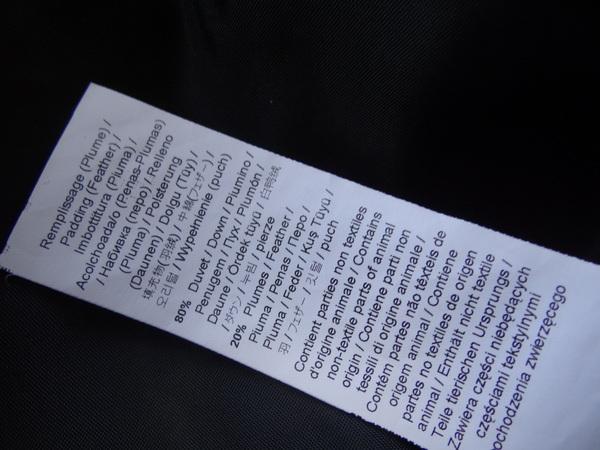 Remplissage (Plume) /
Padding (Feather) /
Imbottitura (Piuma) /
Acolchoadafo (Penas-Plumas)
/ Набивка (перо) / Relleno
(Pluma) / Polsterung
(Daunen) / Dolgu (Tüy) /
填充物(羽绒) / 中綿(フェザー) /
오리털 / Wypełnienie (puch)
80% Duvet / Down / Piumino /
Penugem / Пух / Plumón /
Daune / Ördek tüyü / 白鸭绒
/ ダウン / 누비 / pierze
20% Plumes / Feather /
Piuma / Penas / Перо /
Pluma / Feder / Kuş Tüyü /
羽 / フェザー / 깃털 / puch
Contient parties non textiles
d'origine animale / Contains
non-textile parts of animal
origin / Contiene parti non
tessili di origine animale /
Contém partes não têxteis de
origem animal / Contiene
partes no textiles de origen
animal / Enthält nicht textile
Teile tierischen Ursprungs /
Zawiera części niebędących
częściami tekstylnymi
pochodzenia zwierzęcego